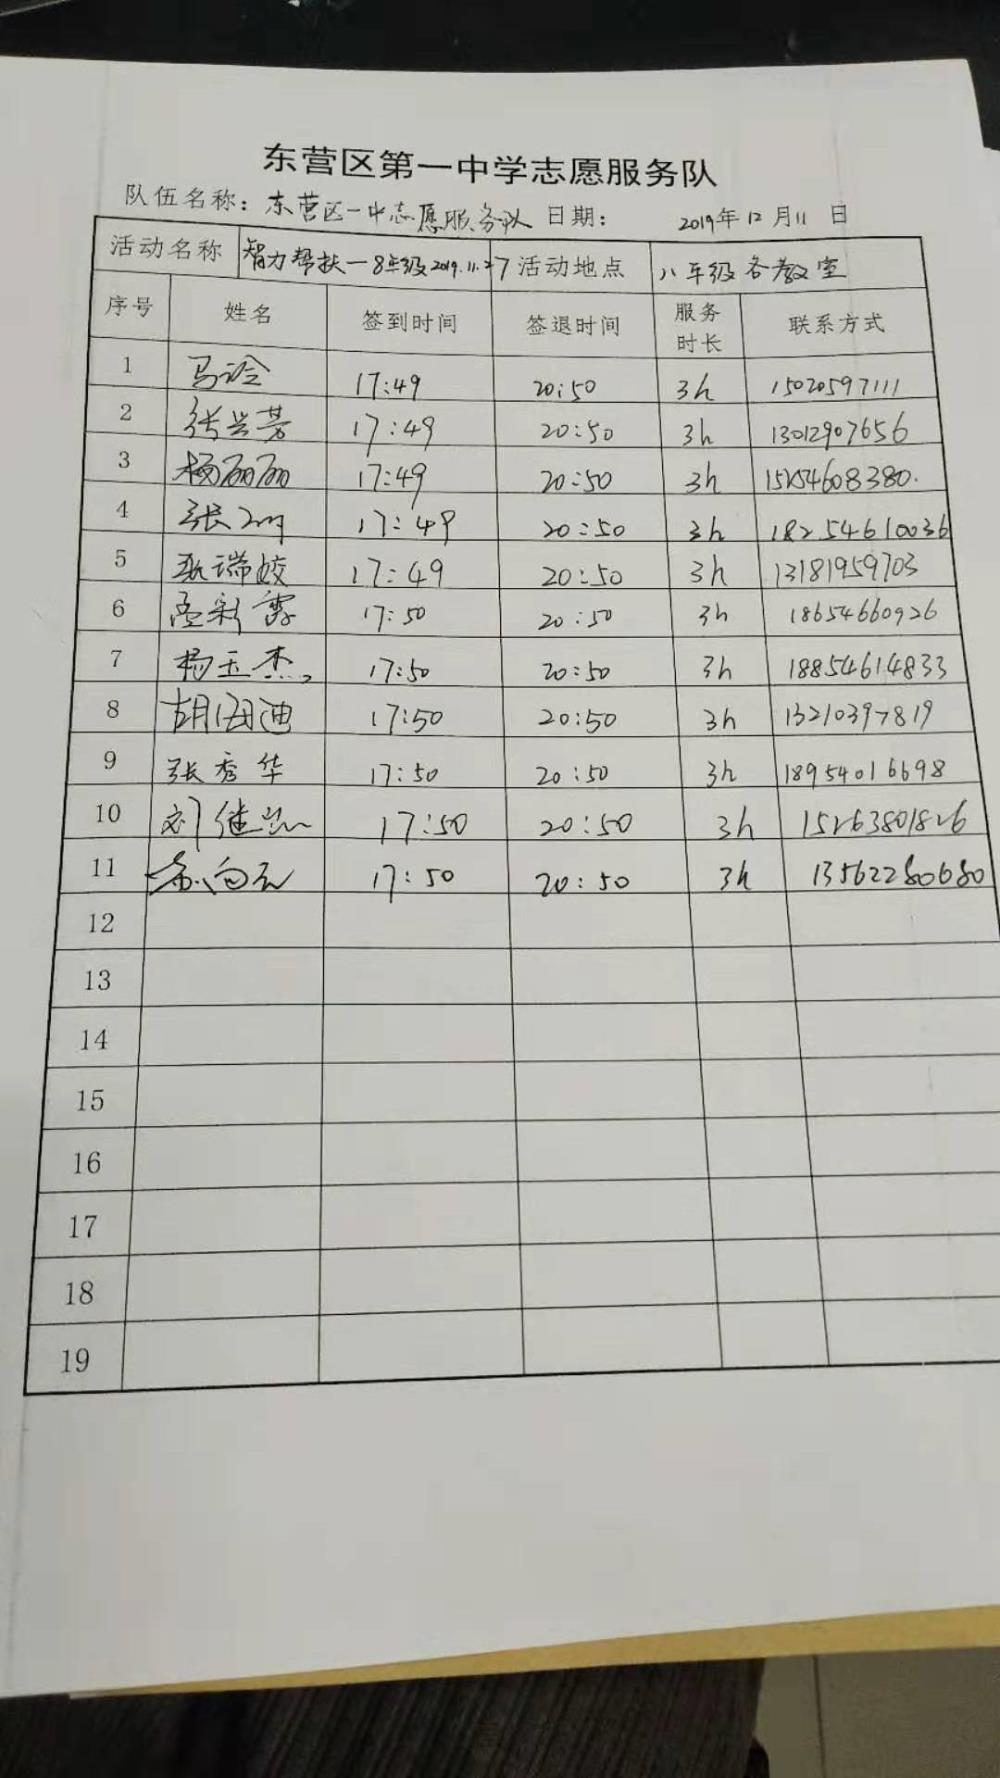 东营区第一中学志愿服务队
队伍名称：东营区一中志愿服务队 日期： 2019年12月11日
活动名称 智力帮扶一8年级2019.11. 活动地点 八年级各教室
序号 姓名 签到时间 签退时间 服务时长 联系方式
1 马 17:49 20:50 3h 15020597111
2 张兰芳 17:49 20:50 3h 13012907656
3 杨丽丽 17:49 20:50 3h 15254608380.
4 张 17:49 20:50 3h 18254610036
5 瑞姣 17:49 20:50 3h 13181959703
6 孟彩霞 17:50 20:50 3h 18654660926
7 杨玉杰 17:50 20:50 3h 18854614833
8 胡海迪 17:50 20:50 3h 13210397819
9 张秀华 17:50 20:50 3h 18954016698
10 刘继 17:50 20:50 3h 15263801826
11 白云 17:50 20:50 3h 13562280680
12
13
14
15
16
17
18
19